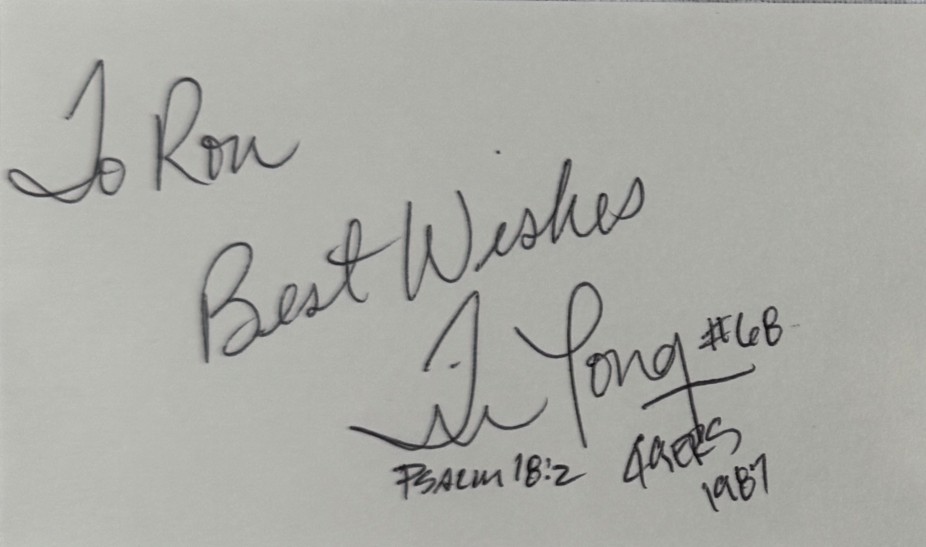 To Ron
Best Wishes
Tim Long #68
Psalm 18:2 49ERS
1987